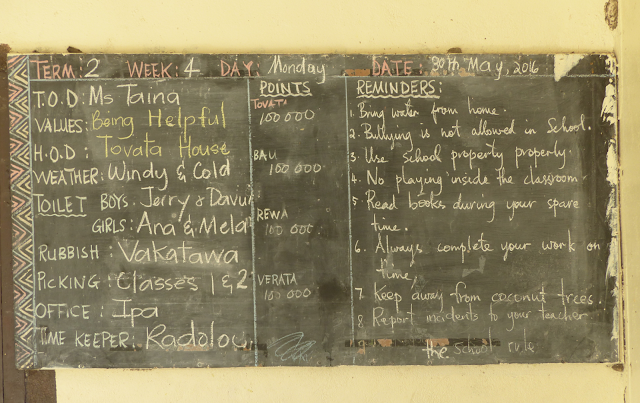 TERM: 2 WEEK: 4 DAY: Monday DATE: 30th May, 2016
T.O.D: Ms Taina
VALUES: Being Helpful
H.O.D: Tovata House
WEATHER: Windy & Cold
TOILET BOYS: Jerry & Davui
GIRLS: Ana & Mela
RUBBISH: Vakatawa
PICKING: Classes 1 & 2
OFFICE: Ipa
TIME KEEPER: Radolou
POINTS
TOVATA
100 000
BAU
100 000
REWA
100 000
VERATA
100 000
REMINDERS:
1. Bring water from home.
2. Bullying is not allowed in School.
3. Use school property properly.
4. No playing inside the classroom
5. Read books during your spare
time.
6. Always complete your work on
time.
7. Keep away from coconut trees.
8. Report incidents to your teacher
the school rule